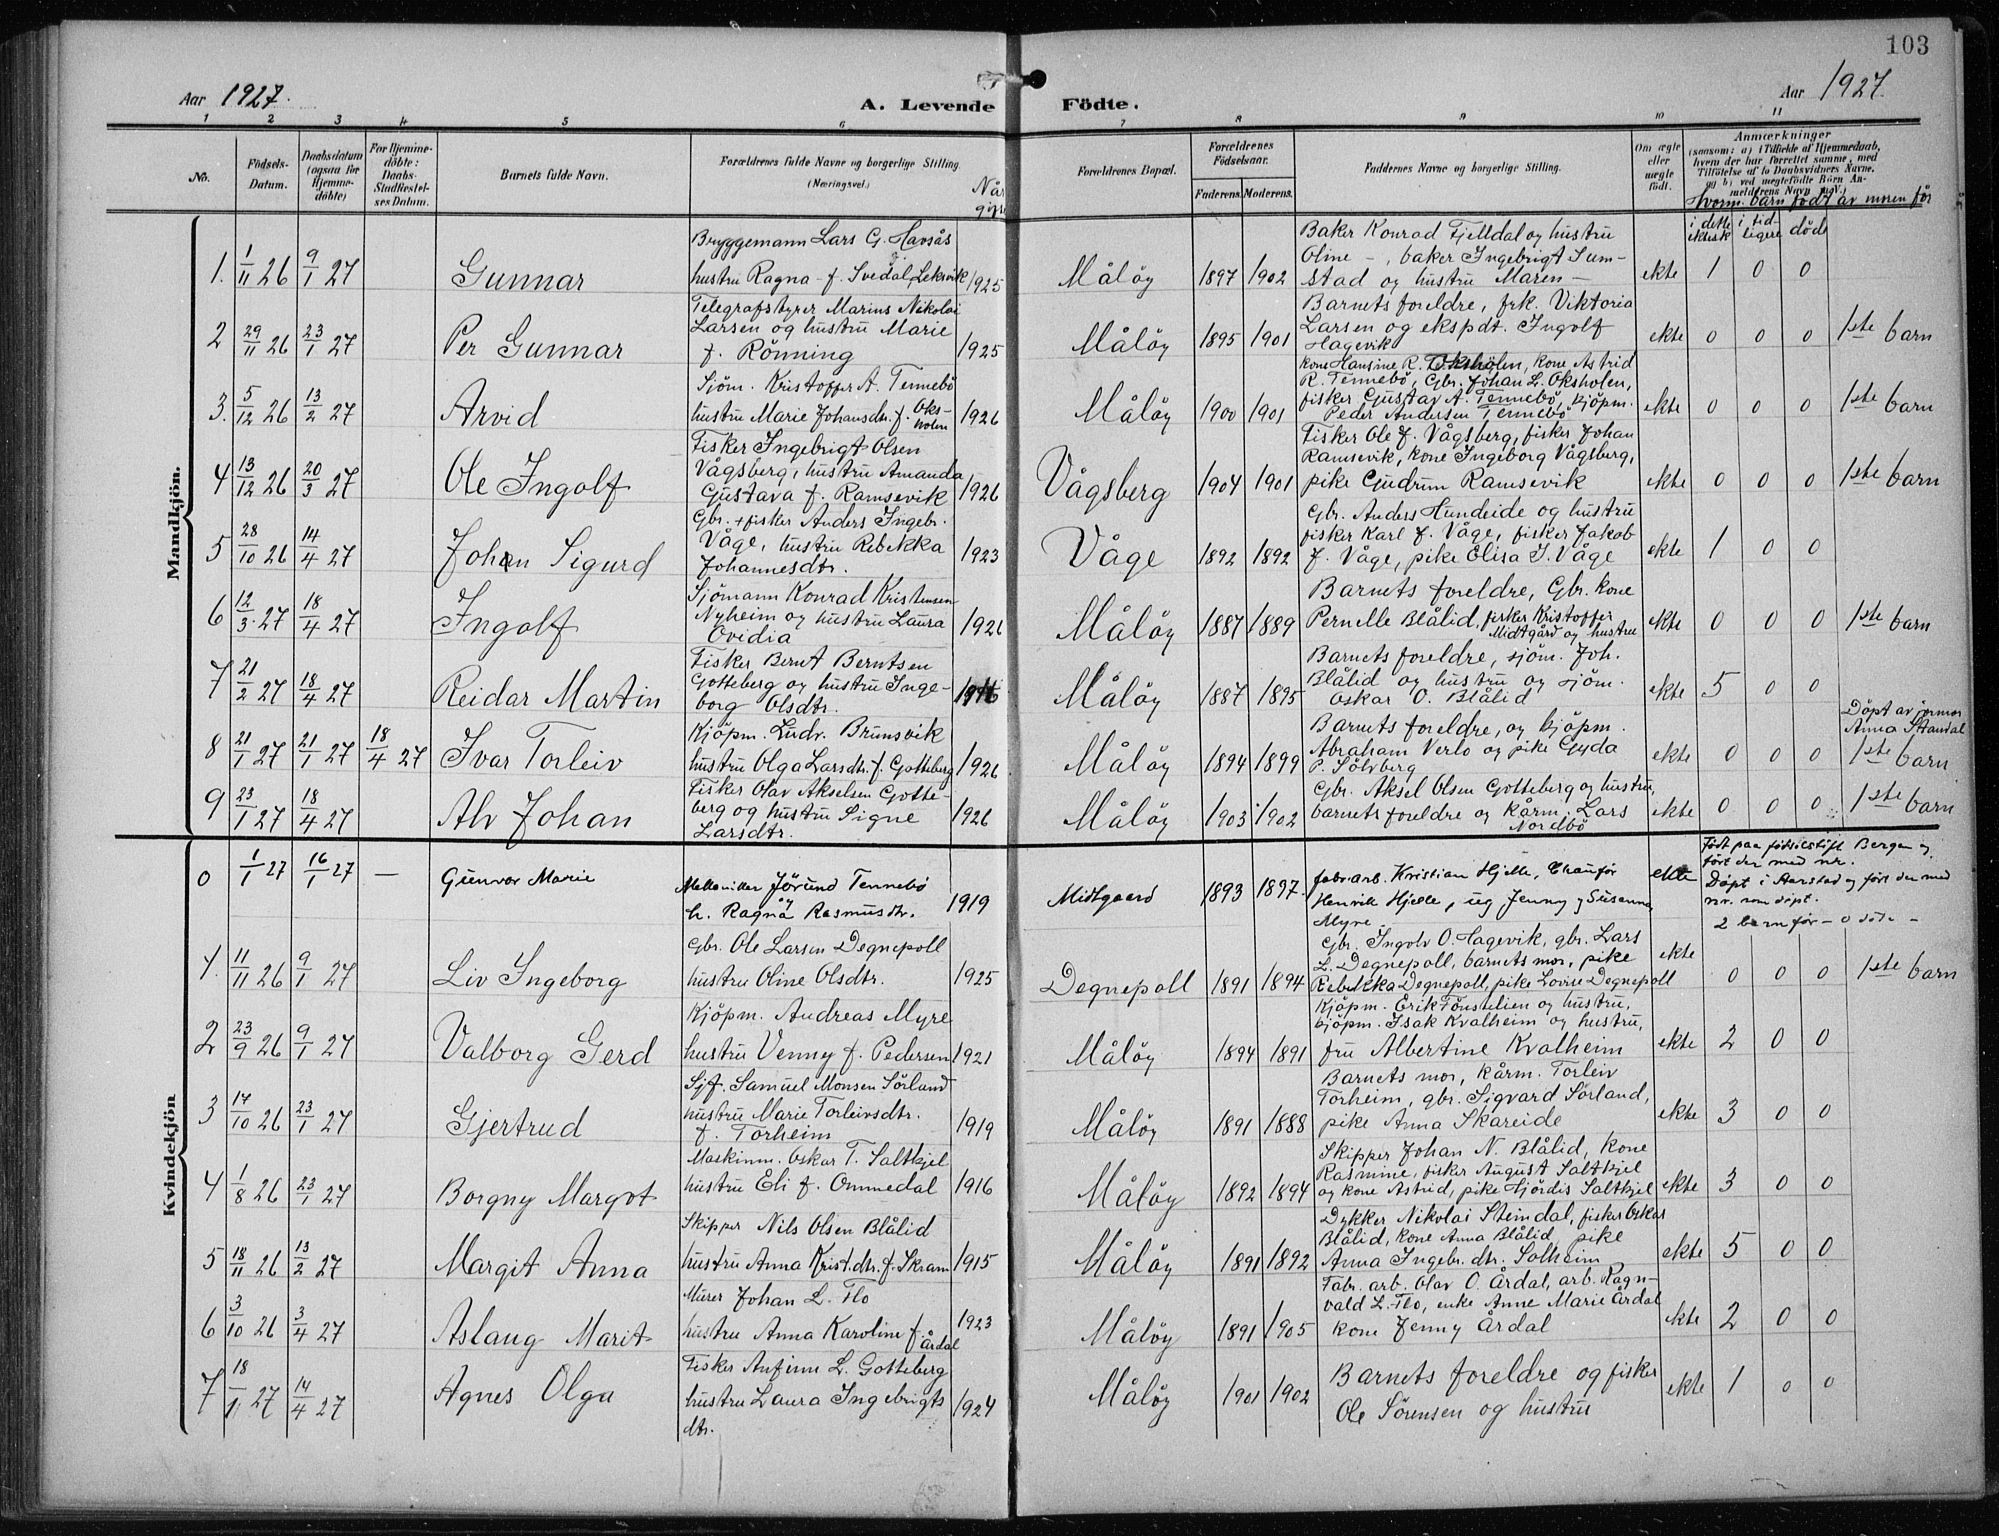 103
Aar 1927.
A. Levende Födte.
Aar 1927.
1 2 3 4 5 6 7 8 9 10 11
No.
Födsels-
Datum.
Daabsdatum
(ogsaa for
Hjemme-
döbte)
For Hjemme-
döbte:
Daabs-
Stadfæstel-
ses Datum.
Barnets fulde Navn.
Forældrenes fulde Navne og borgerlige Stilling.
(Næringsvei.)
Når
gifte
Forældrenes Bopæl.
Forældrenes
Födselsaar.
Faderens. Moderens.
Faddernes Navne og borgerlige Stilling.
Om ægte
eller
uægte
födt.
Anmærkninger
(saasom: a) i Tilfælde af Hjemmedaab,
hvem der har forrettet samme, med
Tilföielse af to Daabsvidners Navne,
og b) ved uægtefödte Börn An-
melderens Navn m. v.)
Hvorm. barn født av moren før
i dette
ektesk.
i tid-
ligere
døde
Mandkjön.
1. 1/11 26 9/1 27 Gunnar
Bryggemann Lars G. Havsås
hustru Ragna f. Svedal, Leksvik 1925
Måløy 1897 1902
Baker Konrad Fjelldal og hustru
Oline -, baker Ingebrigt Sum-
stad og hustru Maren -
ekte 1 0 0
2 29/11 26 23/1 27 Per Gunnar
Telegrafstyrer Marius Nikolai
Larsen og hustru Marie
f. Rönning 1925
Måløy 1895 1901
Barnets foreldre, frk. Viktoria
Larsen og ekspdt. Ingolf
Hagevik
ekte 0 0 0 1ste barn
3. 5/12 26 13/2 27 Arvid
Sjöm. Kristoffer A. Tennebö
hustru Marie Johansdtr. f. Oks-
holen 1926
Måløy 1900 1901
kone Hansine R. Oksholen, kone Astrid
R. Tennebö, Gbr. Johan L. Oksholen,
fisker Gustav A. Tennebö, kjöpm.
Peder Andersen Tennebö
ekte 0 0 0 1ste barn
4 13/12 26 20/3 27 Ole Ingolf
Fisker Ingebrigt Olsen
Vågsberg, hustru Amanda
Gustava f. Ramsevik 1926
Vågsberg 1904 1901
Fisker Ole J. Vågsberg, fisker Johan
Ramsevik, kone Ingeborg Vågsberg,
pike Gudrun Ramsevik
ekte 0 0 0 1ste barn
5 28/10 26 14/4 27 Johan Sigurd
Gbr. + fisker Anders Ingebr.
Våge, hustru Rebekka
Johannesdtr. 1923
Våge 1892 1892
Gbr. Anders Hundeide og hustru
fisker Karl J. Våge, fisker Jakob
J. Våge, pike Elisa I. Våge
ekte 1 0 0
6 12/3 27 18/4 27 Ingolf
Sjömann Konrad Kristensen
Nyheim og hustru Laura
Ovidia 1926
Måløy 1887 1889
Barnets foreldre, Gbr. kone
Pernelle Blålid, fisker Kristoffer
Midtgård og hustru
ekte 0 0 0 1ste barn
7 21/2 27 18/4 27 Reidar Martin
Fisker Bernt Berntsen
Gotteberg og hustru Inge-
borg Olsdtr. 1916
Måløy 1887 1895
Barnets foreldre, sjöm. Joh.
Blålid og hustru og sjöm.
Oskar O. Blålid
ekte 5 0 0
8 21/1 27 21/1 27 18/4 27 Ivar Torleiv
Kjöpm. Ludv. Brunsvik
hustru Olga Larsdtr. f. Gotteberg 1926
Måløy 1894 1899
Barnets foreldre, og kjöpm.
Abraham Verlo og pike Gyda
P. Sölvberg
ekte 0 0 0
Döpt av jormor
Anna Standal
1ste barn
9 23/1 27 18/4 27 Alv Johan
Fisker Olav Akselsen Gotte-
berg og hustru Signe
Larsdtr. 1926
Måløy 1903 1902
Gbr. Aksel Olsen Gotteberg og hustru,
barnets foreldre og kårm. Lars
Nordbö
ekte 0 0 0 1ste barn
Kvindekjön
0 1/1 27 16/1 27 — Gunvor Marie
Jörund Tennebö
h. Ragna Rasmusdtr. 1919
Midtgaard 1893 1897
fabr. arb. Kristian Hjelle, Chauför
Henrik Hjelle, ug Jenny og Susanna
Myre
ekte
Födt paa fødselsstift. Bergen og
fört der med nr.
Döpt i Aarstad og fört der med
nr. som döpt.
2 barn før - 0 döde -
1. 11/11 26 9/1 27 Liv Ingeborg
Gbr. Ole Larsen Degnepoll
hustru Oline Olsdtr. 1925
Degnepoll 1891 1894
Gbr. Ingolv O. Hagevik, gbr. Lars
L. Degnepoll, barnets mor, pike
Rebekka Degnepoll, pike Lovise Degnepoll
ekte 0 0 0 1ste barn
2 23/9 26 9/1 27 Valborg Gerd
Kjöpm. Andreas Myre
hustru Venny f. Pedersen 1921
Måløy 1894 1891
Kjöpm. Erik Tönselien og hustru,
kjöpm. Isak Kvalheim og hustru,
fru Albertine Kvalheim
ekte 2 0 0
3 17/10 26 23/1 27 Gjertrud
Sjf. Samuel Monsen Sörland
hustru Marie Torleivsdtr.
f. Torheim 1919
Måløy 1891 1888
Barnets mor, kårm. Torleiv
Torheim, gbr. Sigvard Sörland,
pike Anna Skareide
ekte 3 0 0
4 1/8 26 23/1 27 Borgny Margot
Maskinm. Oskar T. Saltkjel
hustru Eli f. Ommedal 1916
Måløy 1892 1894
Skipper Johan N. Blålid, kone
Rasmine, fisker August Saltkjel
og kone Astrid, pike Hjördis Saltkjel
ekte 3 0 0
5 18/11 26 13/2 27 Margit Anna
Skipper Nils Olsen Blålid
hustru Anna Krist.dtr. f. Skram 1915
Måløy 1891 1892
Dykker Nikolai Steindal, fisker Oskar
Blålid, kone Anna Blålid, pike
Anna Ingebr. dtr. Solheim
ekte 5 0 0
6 3/10 26 3/4 27 Aslaug Marit
Murer Johan L. Flo
hustru Anna Karoline f. Årdal 1923
Måløy 1891 1905
Fabr. arb. Olav O. Årdal, arb. Ragn-
vald L. Flo, enke Anne Marie Årdal
kone Jenny Årdal
ekte 2 0 0
7 18/1 27 14/4 27 Agnes Olga
Fisker Anfinn L. Gotteberg
hustru Laura Ingebrigts
dtr. 1924
Måløy 1901 1902
Barnets foreldre og fisker
Ole Sörensen og hustru
ekte 1 0 0